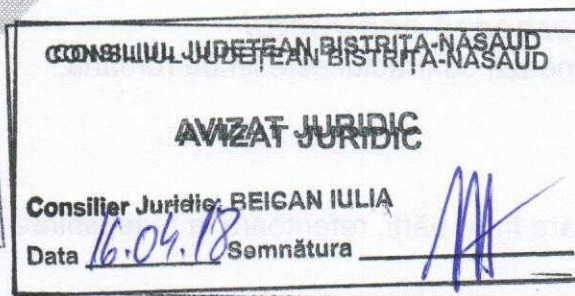 CONSILIUL JUDEȚEAN BISTRIȚA-NĂSĂUD
AVIZAT JURIDIC
Consilier Juridic: BEICAN IULIA
Data 16.04.18 Semnătura